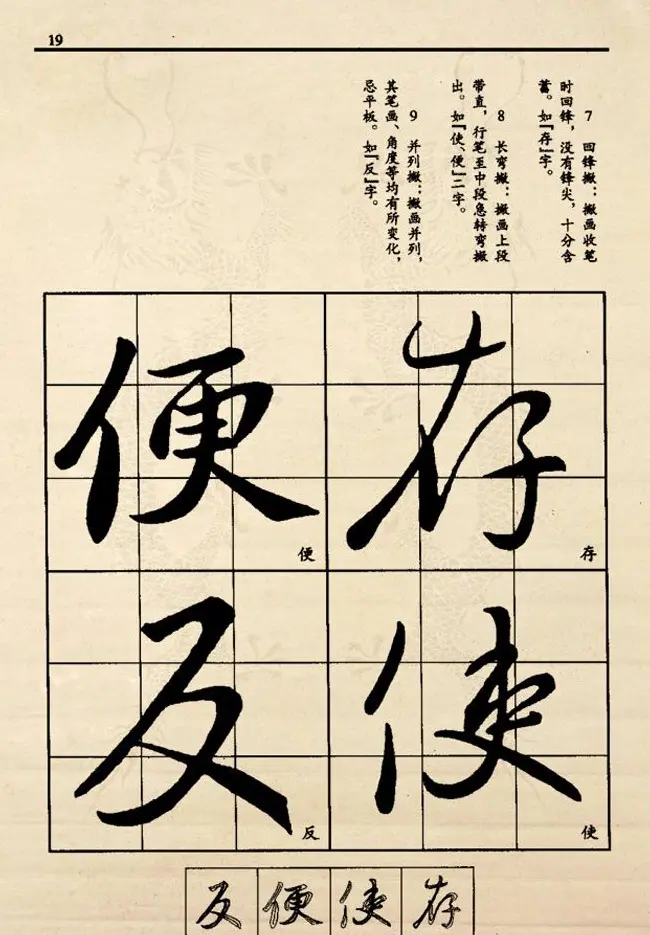 19
7 回锋撇：撇画收笔
时回锋，没有锋尖，十分含
蓄。如『存』字。
8 长弯撇：撇画上段
带直，行笔至中段急转弯撇
出。如『使、便』二字。
9 并列撇：撇画并列，
其笔画、角度等均有所变化，
忌平板。如『反』字。
存
存
使
使
便
便
反
反
存
使
便
反